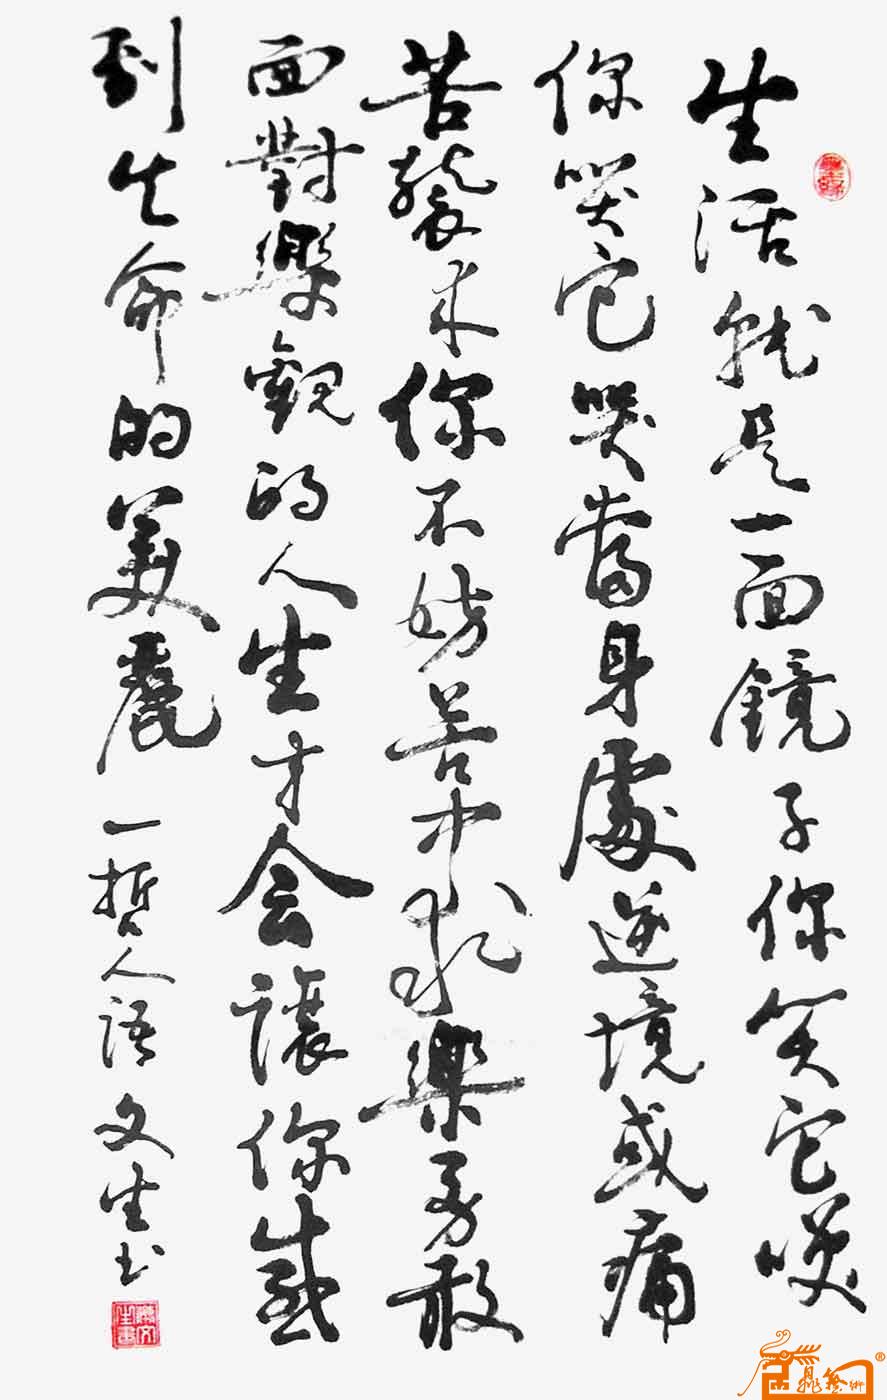 生活就是一面鏡子你笑它咲
你哭它哭當身處逆境或痛
苦襲来你不妨苦中求樂勇敢
面對樂觀的人生才会讓你感
到生命的美麗 一哲人語 文生书